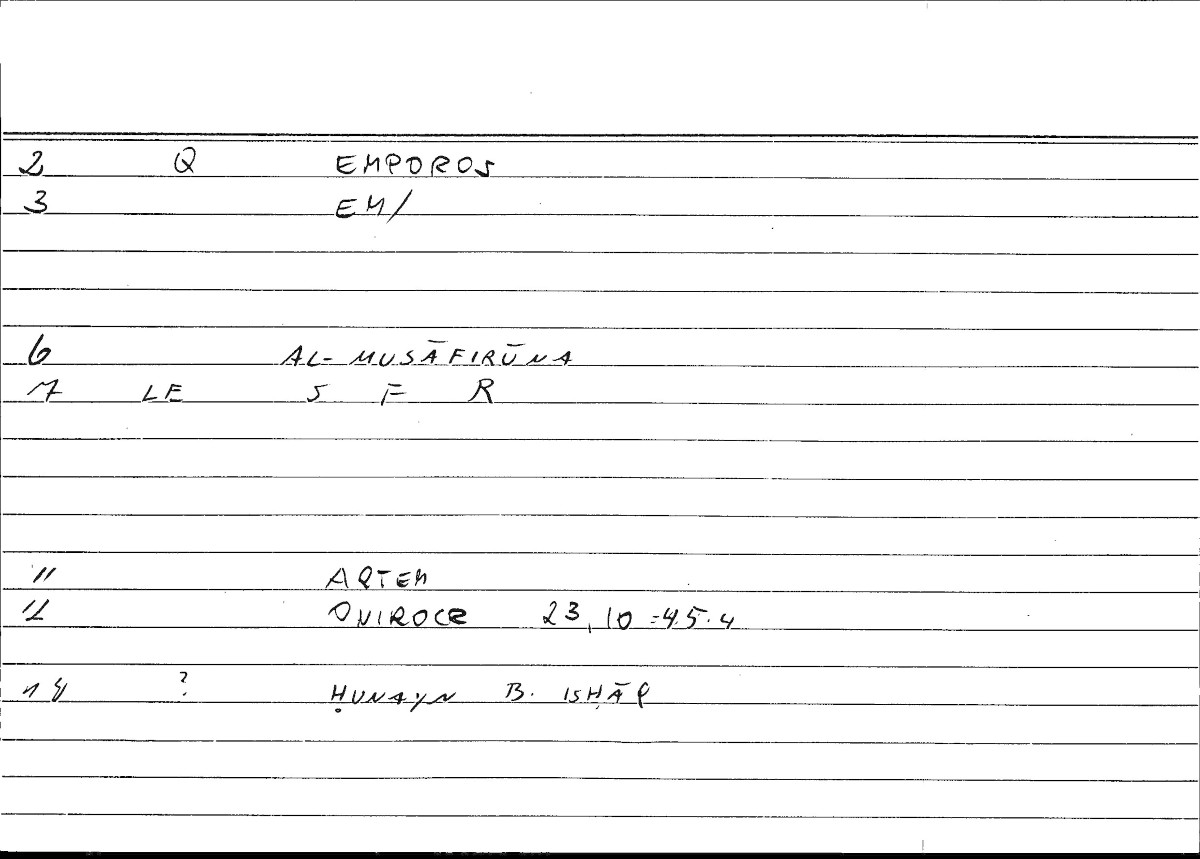 2 Q EMPOROS
3 EM/
6 AL-MUSĀFIRŪNA
7 LE S F R
11 ARTEM
12 ONIROCR 23,10 =45.4
14 ? ḤUNAYN B. ISḤĀQ